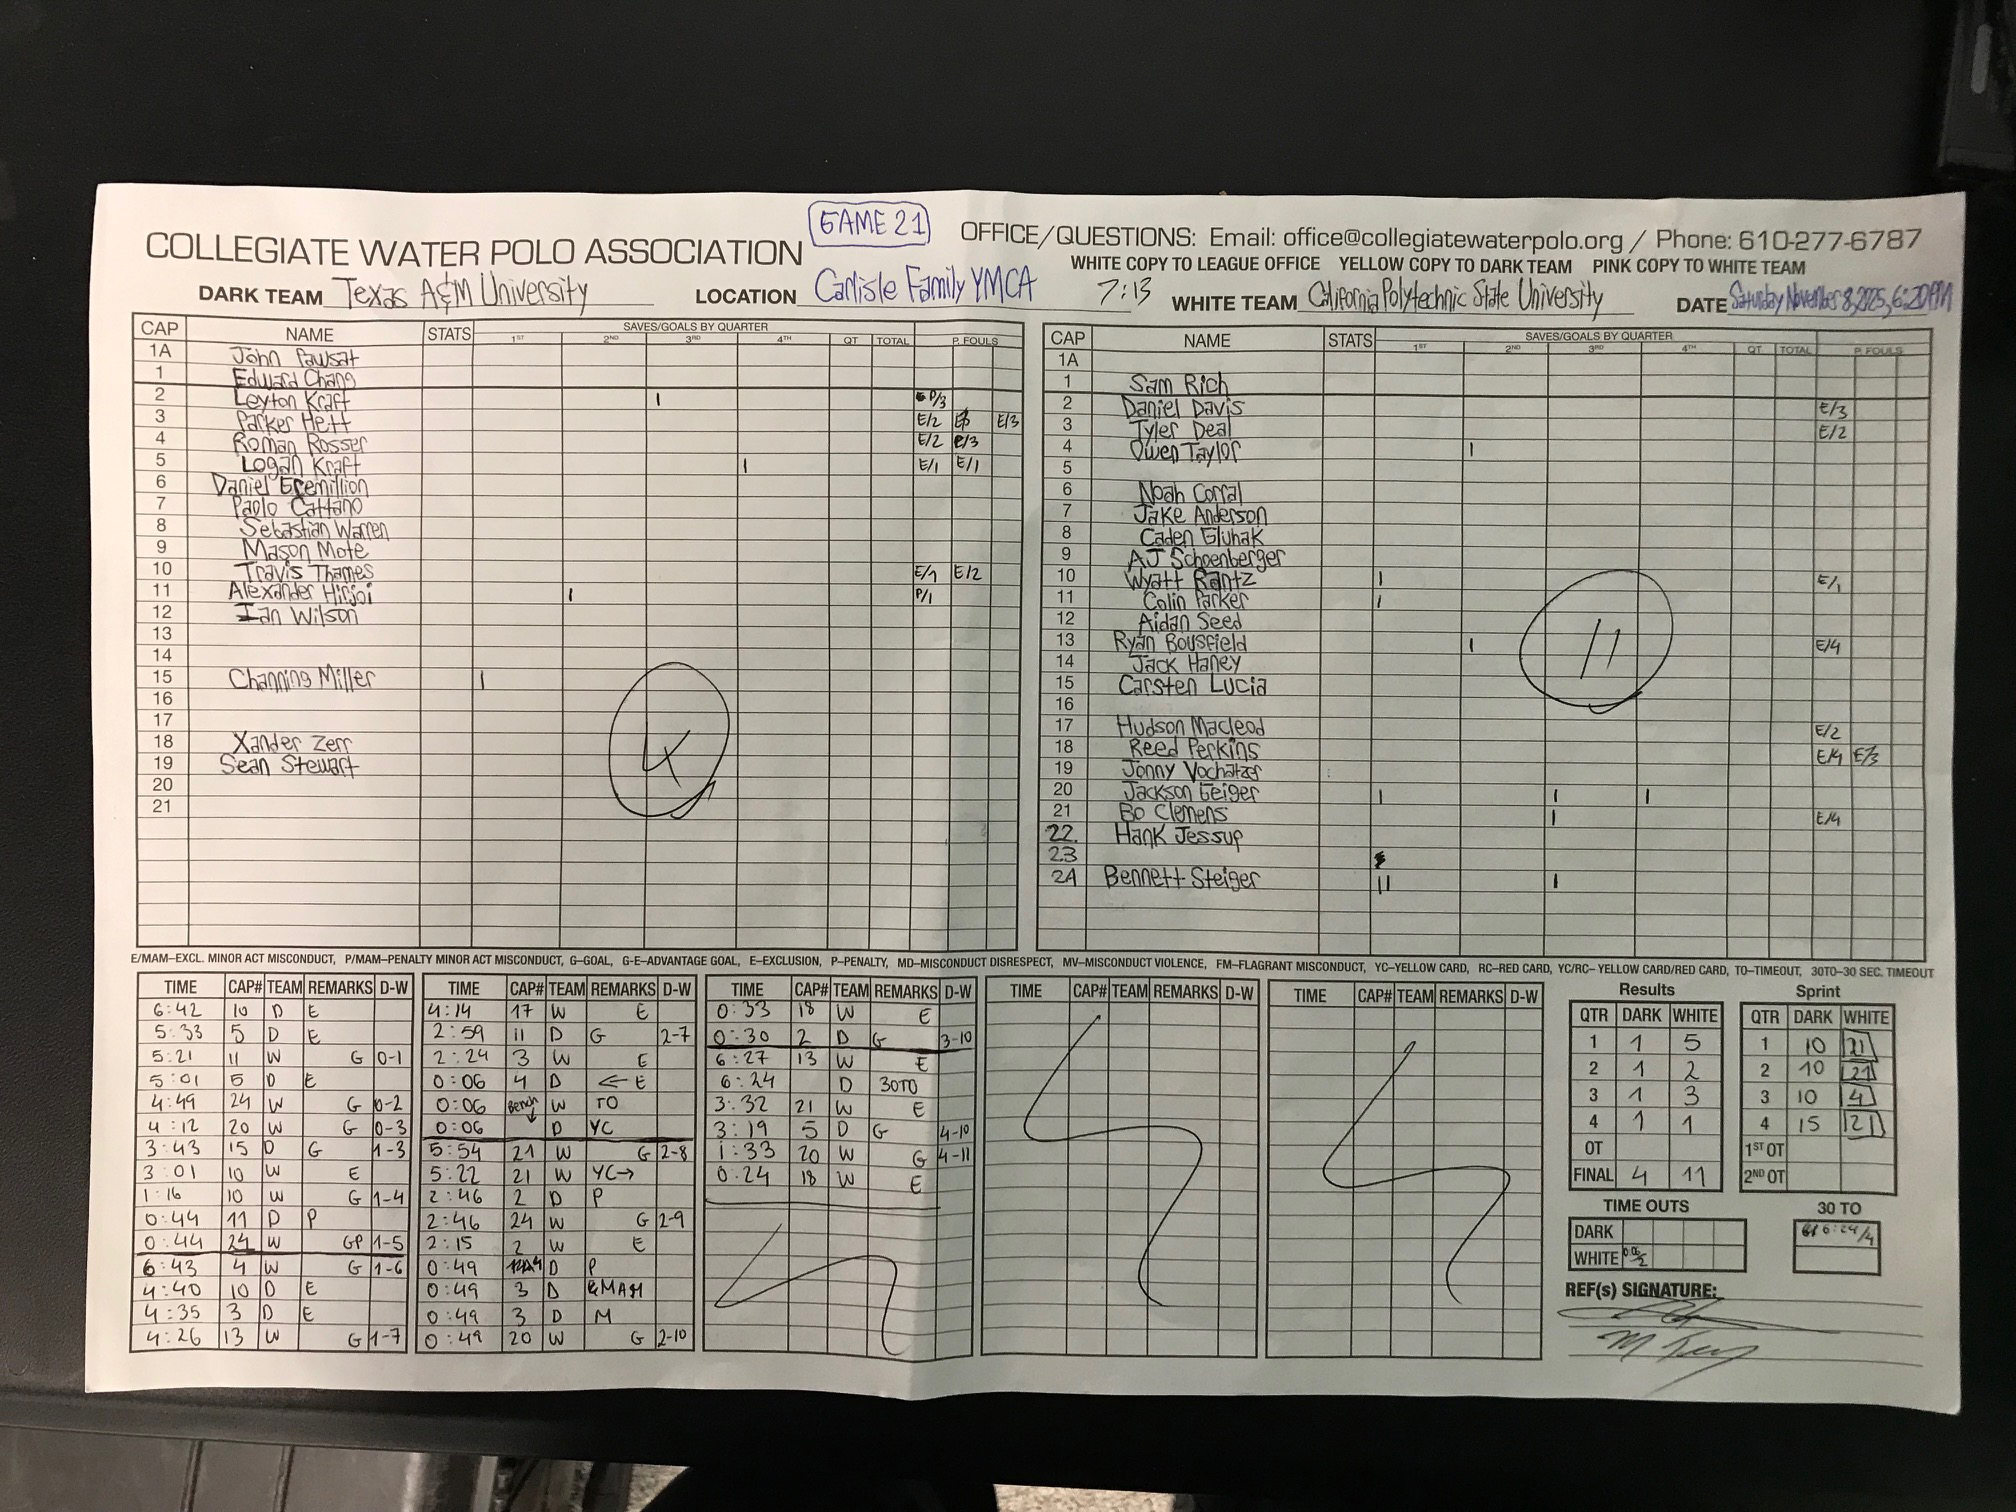 GAME 21
COLLEGIATE WATER POLO ASSOCIATION OFFICE/QUESTIONS: Email: office@collegiatewaterpolo.org / Phone: 610-277-6787
WHITE COPY TO LEAGUE OFFICE YELLOW COPY TO DARK TEAM PINK COPY TO WHITE TEAM
DARK TEAM Texas A&M University LOCATION Carlisle Family YMCA 7:13 WHITE TEAM California Polytechnic State University DATE Saturday November 8, 2025, 6:20PM
CAP NAME STATS SAVES/GOALS BY QUARTER
1ST 2ND 3RD 4TH QT TOTAL P. FOULS
1A John Pawsat
1 Edward Chang
2 Leyton Kraft I P/3
3 Parker Hett E/2 E/3
4 Roman Rosser E/2 P/3
5 Logan Kraft I E/1 E/1
6 Daniel Eremillion
7 Paolo Cattano
8 Sebastian Warren
9 Mason Mote
10 Travis Thames E/1 E/2
11 Alexander Hirjoi I P/1
12 Ian Wilson
13
14
15 Channing Miller I
16
17
18 Xander Zerr
19 Sean Stewart
20
21
4
CAP NAME STATS SAVES/GOALS BY QUARTER
1ST 2ND 3RD 4TH QT TOTAL P FOULS
1A
1 Sam Rich
2 Daniel Davis E/3
3 Tyler Deal E/2
4 Owen Taylor I
5
6 Noah Corral
7 Jake Anderson
8 Caden Gluhak
9 AJ Schoenberger
10 Wyatt Rantz I E/1
11 Colin Parker I
12 Aidan Seed
13 Ryan Bousfield I E/4
14 Jack Haney
15 Carsten Lucia
16
17 Hudson Macleod E/2
18 Reed Perkins E/4 E/3
19 Jonny Vochatzer
20 Jackson Geiger I I I
21 Bo Clemens I E/4
22 Hank Jessup
23
24 Bennett Steiger II I
11
E/MAM–EXCL. MINOR ACT MISCONDUCT, P/MAM–PENALTY MINOR ACT MISCONDUCT, G–GOAL, G-E–ADVANTAGE GOAL, E–EXCLUSION, P–PENALTY, MD–MISCONDUCT DISRESPECT, MV–MISCONDUCT VIOLENCE, FM–FLAGRANT MISCONDUCT, YC–YELLOW CARD, RC–RED CARD, YC/RC–YELLOW CARD/RED CARD, TO–TIMEOUT, 30TO–30 SEC. TIMEOUT
TIME CAP# TEAM REMARKS D-W
6:42 10 D E
5:33 5 D E
5:21 11 W G 0-1
5:01 5 D E
4:49 24 W G 0-2
4:12 20 W G 0-3
3:43 15 D G 1-3
3:01 10 W E
1:16 10 W G 1-4
0:44 11 D P
0:44 24 W GP 1-5
6:43 4 W G 1-6
4:40 10 D E
4:35 3 D E
4:26 13 W G 1-7
TIME CAP# TEAM REMARKS D-W
4:14 17 W E
2:59 11 D G 2-7
2:24 3 W E
0:06 4 D ← E
0:06 Bench W TO
0:06 ↓ D YC
5:54 21 W G 2-8
5:22 21 W YC→
2:46 2 D P
2:46 24 W G 2-9
2:15 2 W E
0:49 4 D P
0:49 3 D EMAM
0:49 3 D M
0:49 20 W G 2-10
TIME CAP# TEAM REMARKS D-W
0:33 18 W E
0:30 2 D G 3-10
6:27 13 W E
6:24 D 30TO
3:32 21 W E
3:19 5 D G 4-10
1:33 20 W G 4-11
0:24 18 W E
TIME CAP# TEAM REMARKS D-W
TIME CAP# TEAM REMARKS D-W
Results
QTR DARK WHITE
1 1 5
2 1 2
3 1 3
4 1 1
OT
FINAL 4 11
Sprint
QTR DARK WHITE
1 10 21
2 10 21
3 10 4
4 15 21
1ST OT
2ND OT
TIME OUTS
DARK
WHITE 0:06/2
30 TO
6:24/4
REF(s) SIGNATURE: